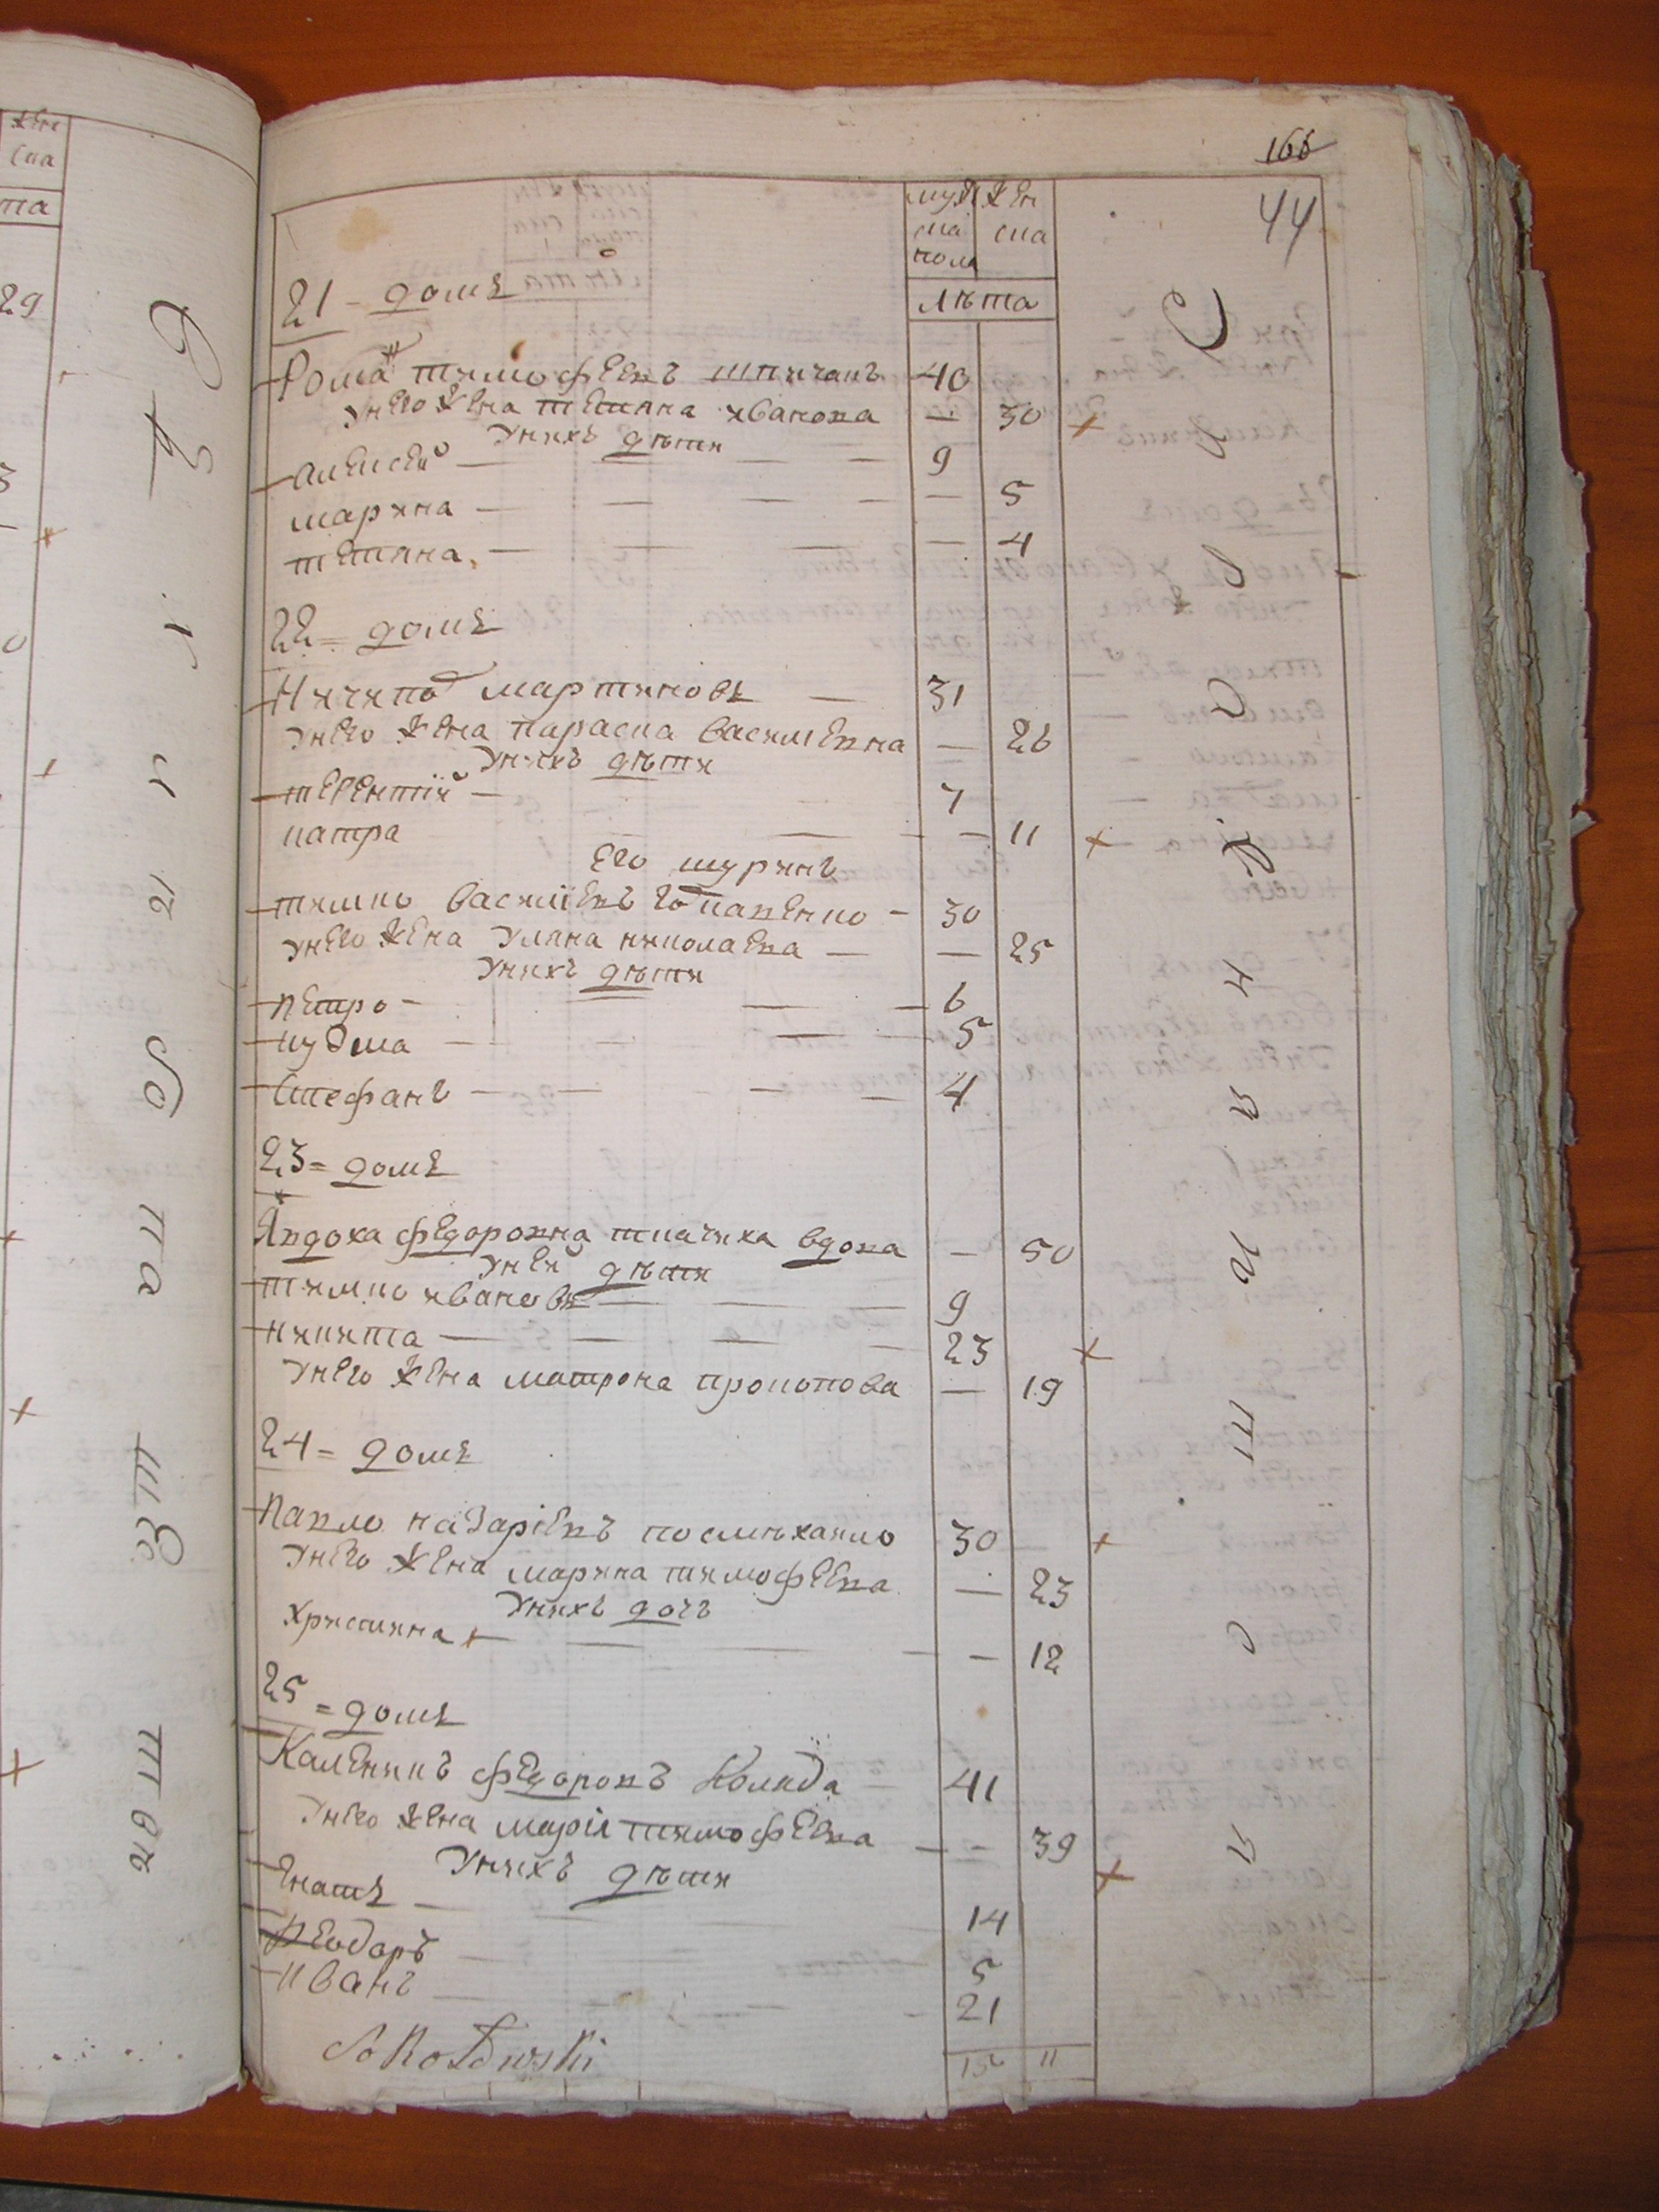 166
44
муж жен
ска ска
пола
лѣта
21 = домъ
Рома тимофеевъ шпичакъ 40
Унего жена тетяна иванова — 30
Унихъ дѣти
алексей — 9
марина — 5
тетяна — 4
22 = домъ
Ничипо мартиновъ — 31
Унего жена параска василевна — 26
Унихъ дѣти
терентїй — 7
катра — 11
Его шуринъ
тимко василїевъ — 30
Унего жена Уляна николаева — 25
Унихъ дѣти
петро — 6
кузма — 5
Стефанъ — 4
23 = домъ
Явдоха федоровна ткачиха вдова — 50
Уней дѣти
тимко ивановъ — 9
никита — 23
Унего жена матрона прокопова — 19
24 = домъ
Павло назарїевъ посмѣхайло 30
Унего жена марина тимофеева — 23
Унихъ дочъ
Христина — 12
25 = домъ
Каленикъ федоровъ Коляда 41
Унего жена марія тимофеева — 39
Унихъ дѣти
Гнатъ — 14
Феодоръ — 5
иванъ — 21
Sokołowski
11
жен
ска
та
29